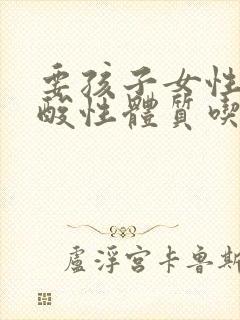 要孩子女性
酸性體質喫
盧浮宮卡魯斯